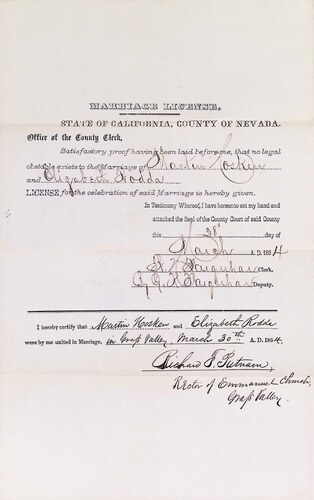 MARRIAGE LICENSE.
STATE OF CALIFORNIA, COUNTY OF NEVADA.
Office of the County Clerk,
Satisfactory proof having been laid before me, that no legal
obstacle exists to the Marriage of Martin Hosken
and Elizabeth Rodda
LICENSE for the celebration of said Marriage is hereby given.
In Testimony Whereof, I have hereunto set my hand and
attached the Seal of the County Court of said County
this 28th day of
March A.D. 1864
Farquhar Clerk.
By Farquhar Deputy.
I hereby certify that Martin Hosken and Elizabeth Rodda
were by me united in Marriage, in Grass Valley, March 30th A.D. 1864.
Richard F. Putnam,
Rector of Emmanuel Church,
Grass Valley.